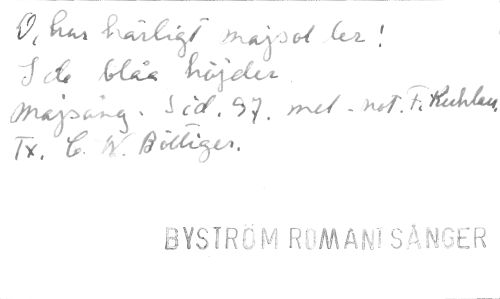 O, hur härligt majsol ler!
I de blåa höjder.
Majsång. Sid. 97. mel-not. F. Kuhlau.
Tx. C. W. Böttiger.
BYSTRÖM ROMANISÅNGER